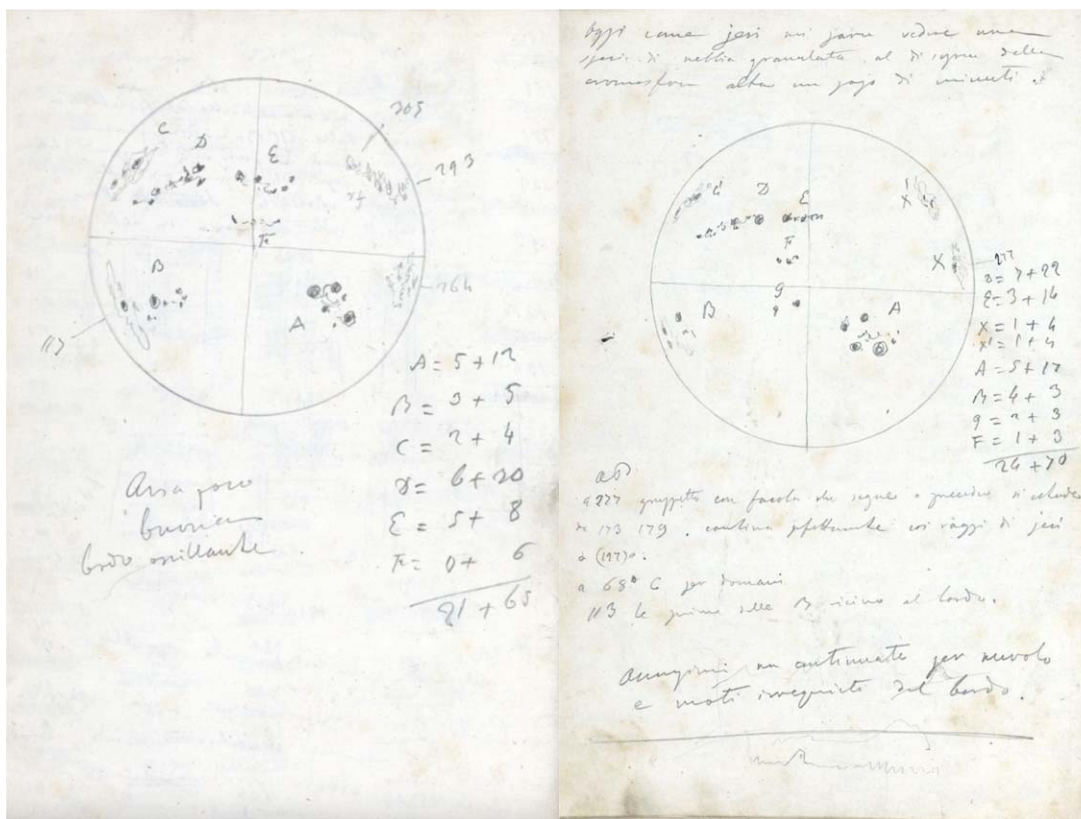 C
D
E
205
293
fr
F
B
264
A
113
A = 5 + 12
B = 3 + 5
C = 2 + 4
D = 6 + 20
E = 5 + 8
F = 0 + 6
21 + 65
Aria poco
buona
bordo oscillante
Oggi come jeri mi parve vedere una
specie di nebbia granulata al di sopra della
cromosfera alta un pajo di minuti
C
D
E
X
F
X
g
B
A
D = 7 + 22
E = 3 + 14
X = 1 + 4
X' = 1 + 4
A = 5 + 17
B = 4 + 3
g = 2 + 3
F = 1 + 3
24 + 70
a 227 gruppetto con facola che segue e precede si
173 179 . continua coi raggi di jeri
a (197)°.
a 68° C per domani
113 le prime delle B vicino al bordo.
non continuate per nuvolo
e moti irrequieti del bordo.